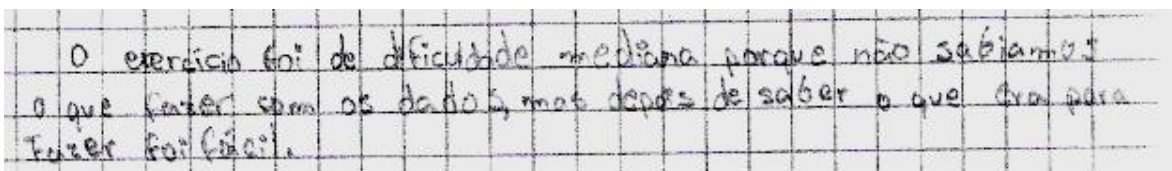 O exercício foi de dificuldade mediana porque não sabiamos
o que fazer com os dados, mas depois de saber o que era para
Fazer foi fácil.